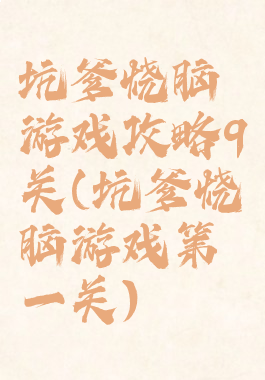 坑爹烧脑
游戏攻略9
关(坑爹烧
脑游戏第
一关)